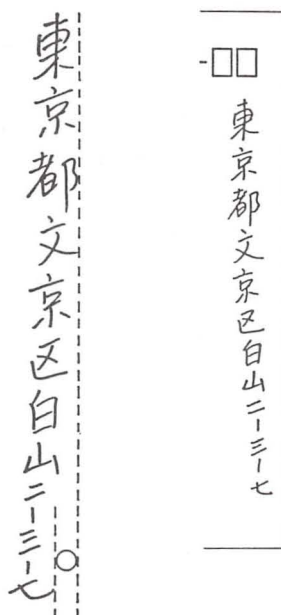 東京都文京区白山二-三-七
東京都文京区白山二-三-七